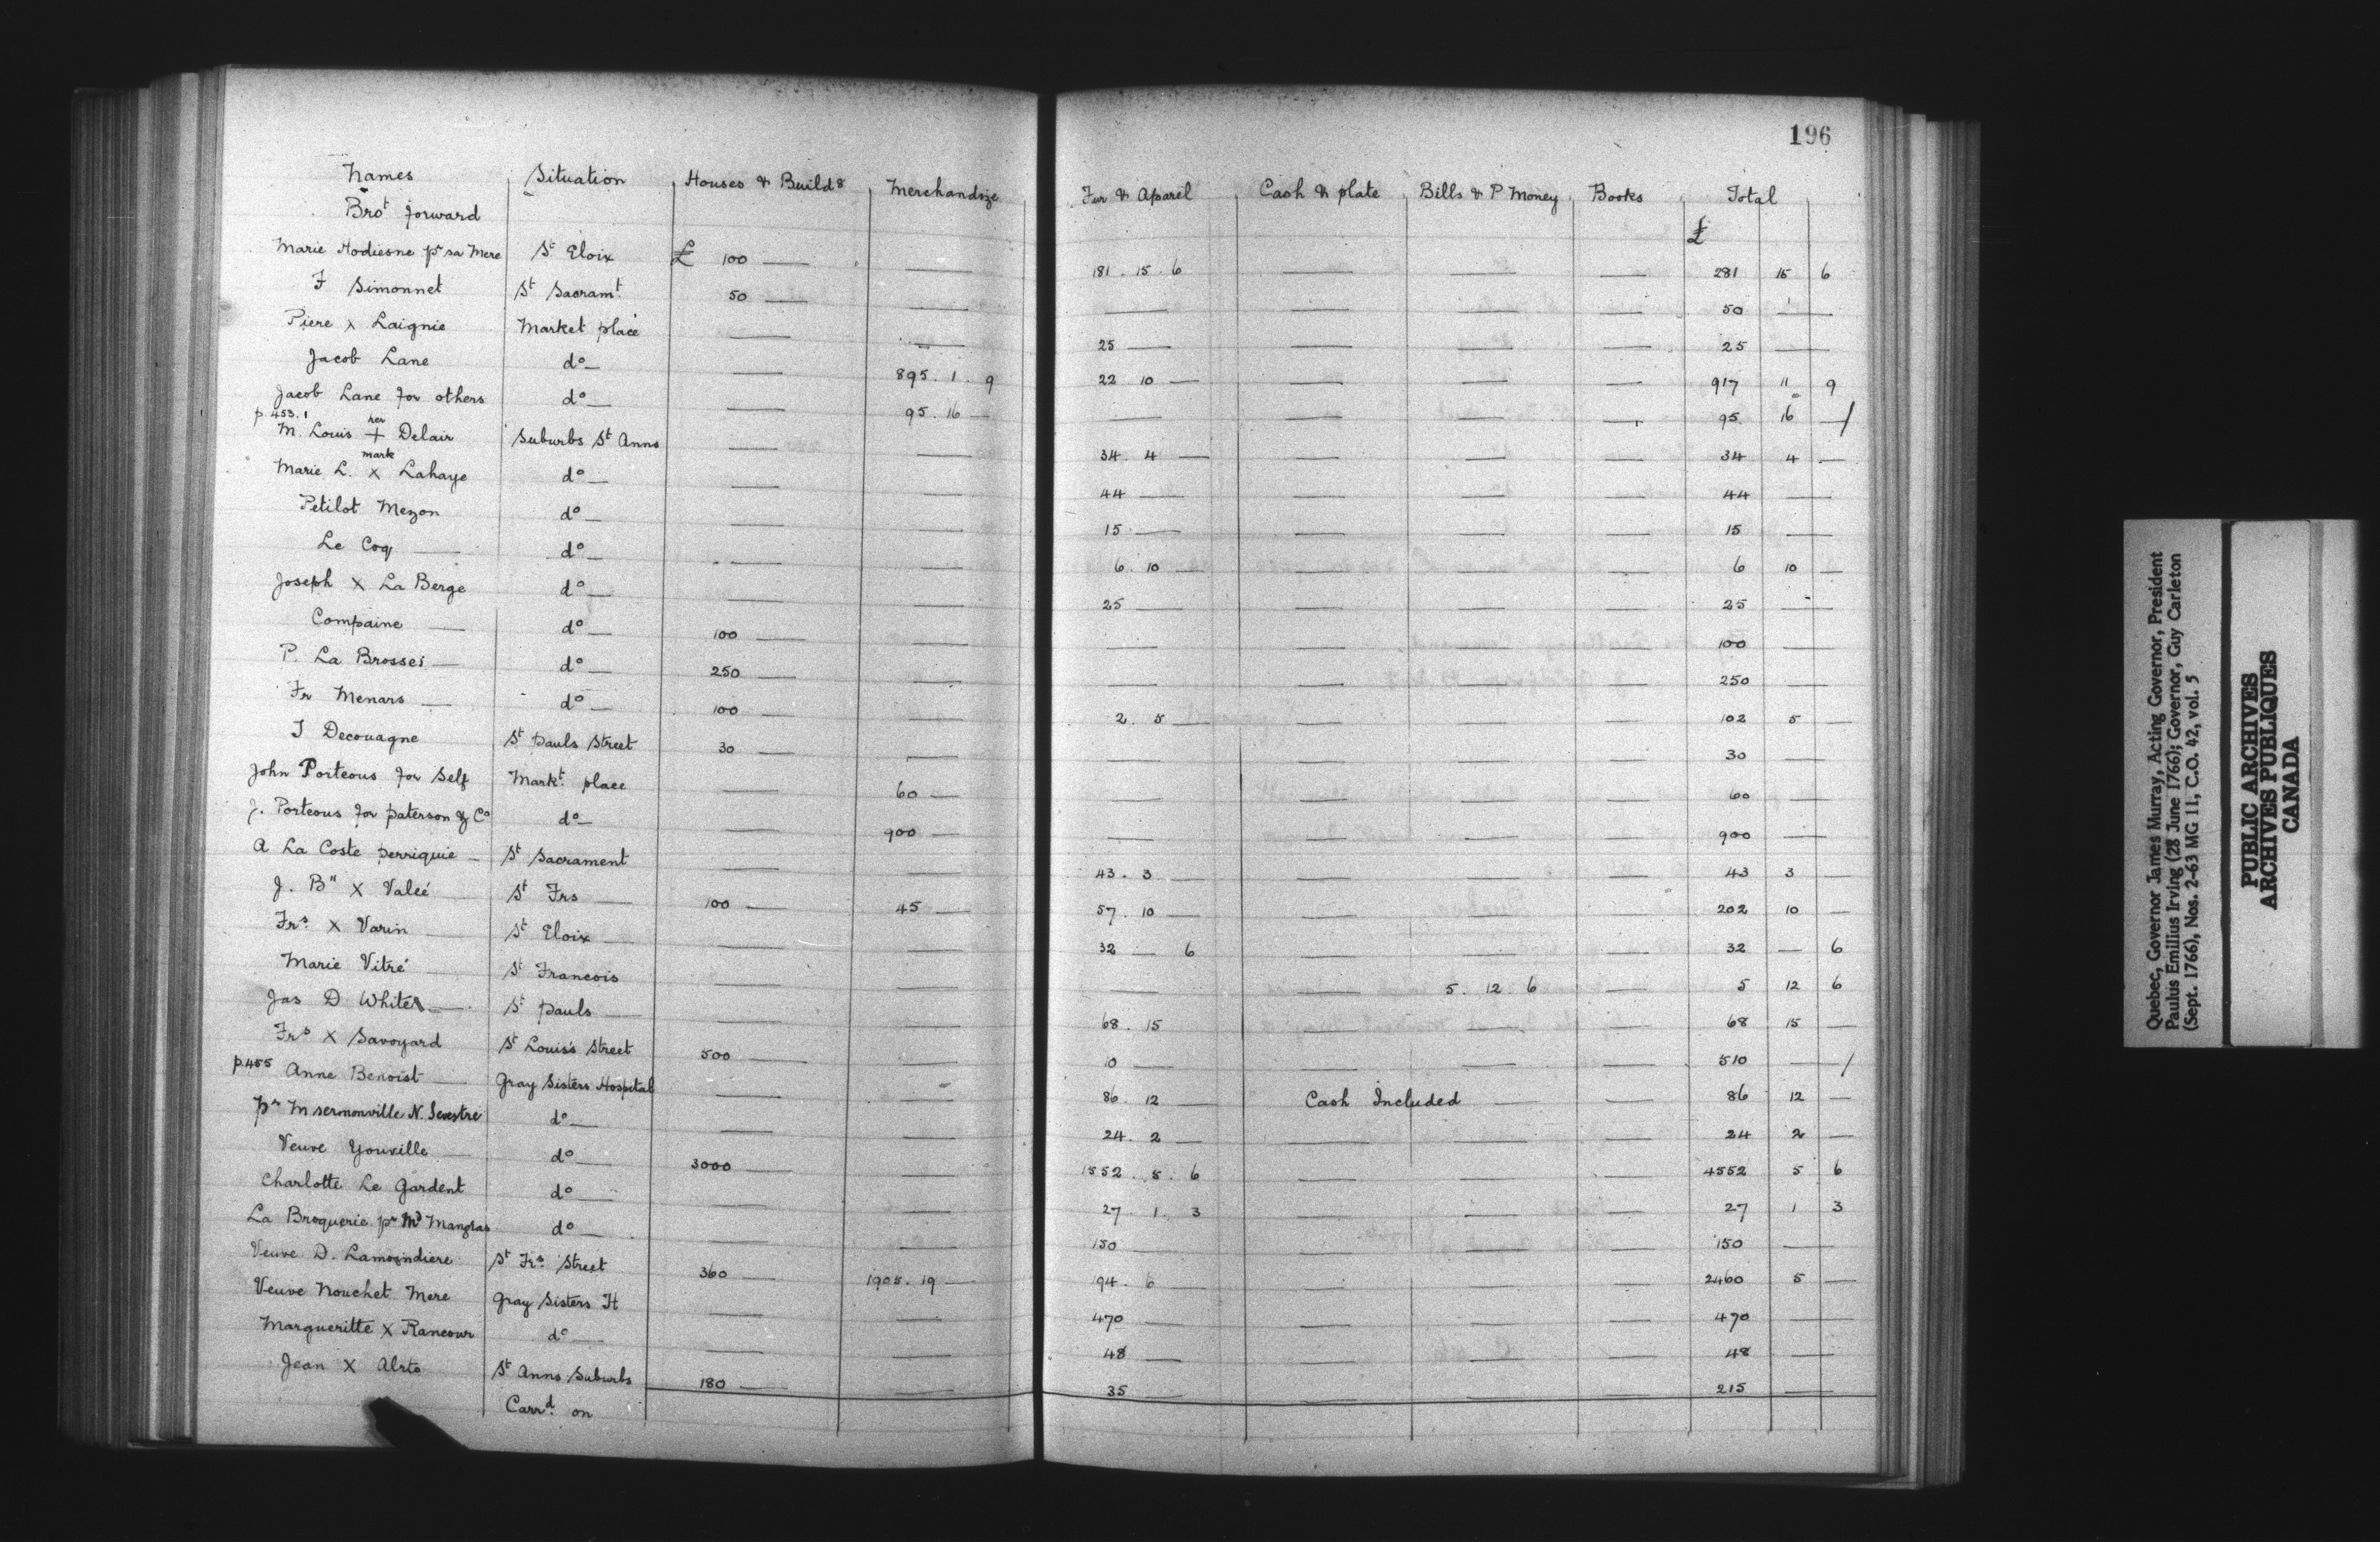 196
Names Situation Houses & Build8 Merchandize Fur & Aparel Cash & plate Bills & P Money Books Total
Brot forward £
Marie Hodiesne pr sa Mere St Eloix £ 100 — — 181 . 15 . 6 — — — 281 15 6
F Simonnet St Sacramt 50 — — — — — — 50 —
Piere x Laignie Market place — — 25 — — — — 25 —
Jacob Lane do — — 895 . 1 . 9 22 10 — — — — 917 11 9
Jacob Lane for others do — — 95 . 16 — — — — — 95 16 —/
p. 453. 1
M. Louis her + mark Delair Suburbs St Anns — — 34 . 4 — — — — 34 4 —
Marie L. x Lahaye do — — — 44 — — — — 44 —
Petilot Mezon do — — — 15 — — — — 15 —
Le Coq — do — — — 6 . 10 — — — — 6 10 —
Joseph x La Berge do — — — 25 — — — — 25 —
Compaine — do — 100 — — — — — — 100 —
P. La Brosses — do — 250 — — — — — — 250 —
Fr Menars — do — 100 — — 2 . 5 — — — — 102 5 —
J Decouagne St Pauls Street 30 — — — — — — 30 —
John Porteous for Self Markt place — 60 — — — — — 60 —
J. Porteous for paterson & Co do — — 900 — — — — — 900 —
A La Coste perriquie — St Sacrament — — 43 . 3 — — — — 43 3 —
J. B" x Valeé St Frs — 100 — 45 — 57 . 10 — — — — 202 10 —
Frs x Varin — St Eloix — — — 32 — 6 — — — 32 — 6
Marie Vitré — St Francois — — — — 5 . 12 . 6 — 5 12 6
Jas D White — St Pauls — — — 68 . 15 — — — 68 15 —
Frs x Savoyard St Louis's Street 500 — — 10 — — — — 510 —/
p.455 Anne Benoist — Gray Sisters Hospital — — 86 . 12 — Cash Included — — 86 12 —
pr M sermonville N. Sevestre do — — — 24 . 2 — — — — 24 2 —
Veuve Youville — do — 3000 — — 1552 . 5 . 6 — — — 4552 5 6
Charlotte Le Gardent do — — — 27 . 1 . 3 — — — 27 1 3
La Broquerie pr Md Manglas do — — — 150 — — — — 150 —
Veuve D. Lamoindiere St Frs Street 360 — 1905 . 19 — 194 . 6 — — — — 2460 5 —
Veuve Nouchet Mere Gray Sisters H — — 470 — — — — 470 —
Margueritte x Rancour do — — — 48 — — — — 48 —
Jean x Alrto St Anns Suburbs 180 — — 35 — — — — 215 —
Carrd on
Quebec, Governor James Murray, Acting Governor, President
Paulus Emilius Irving (28 June 1766); Governor, Guy Carleton
(Sept. 1766), Nos. 2-63 MG 11, C.O. 42, vol. 5
PUBLIC ARCHIVES
ARCHIVES PUBLIQUES
CANADA